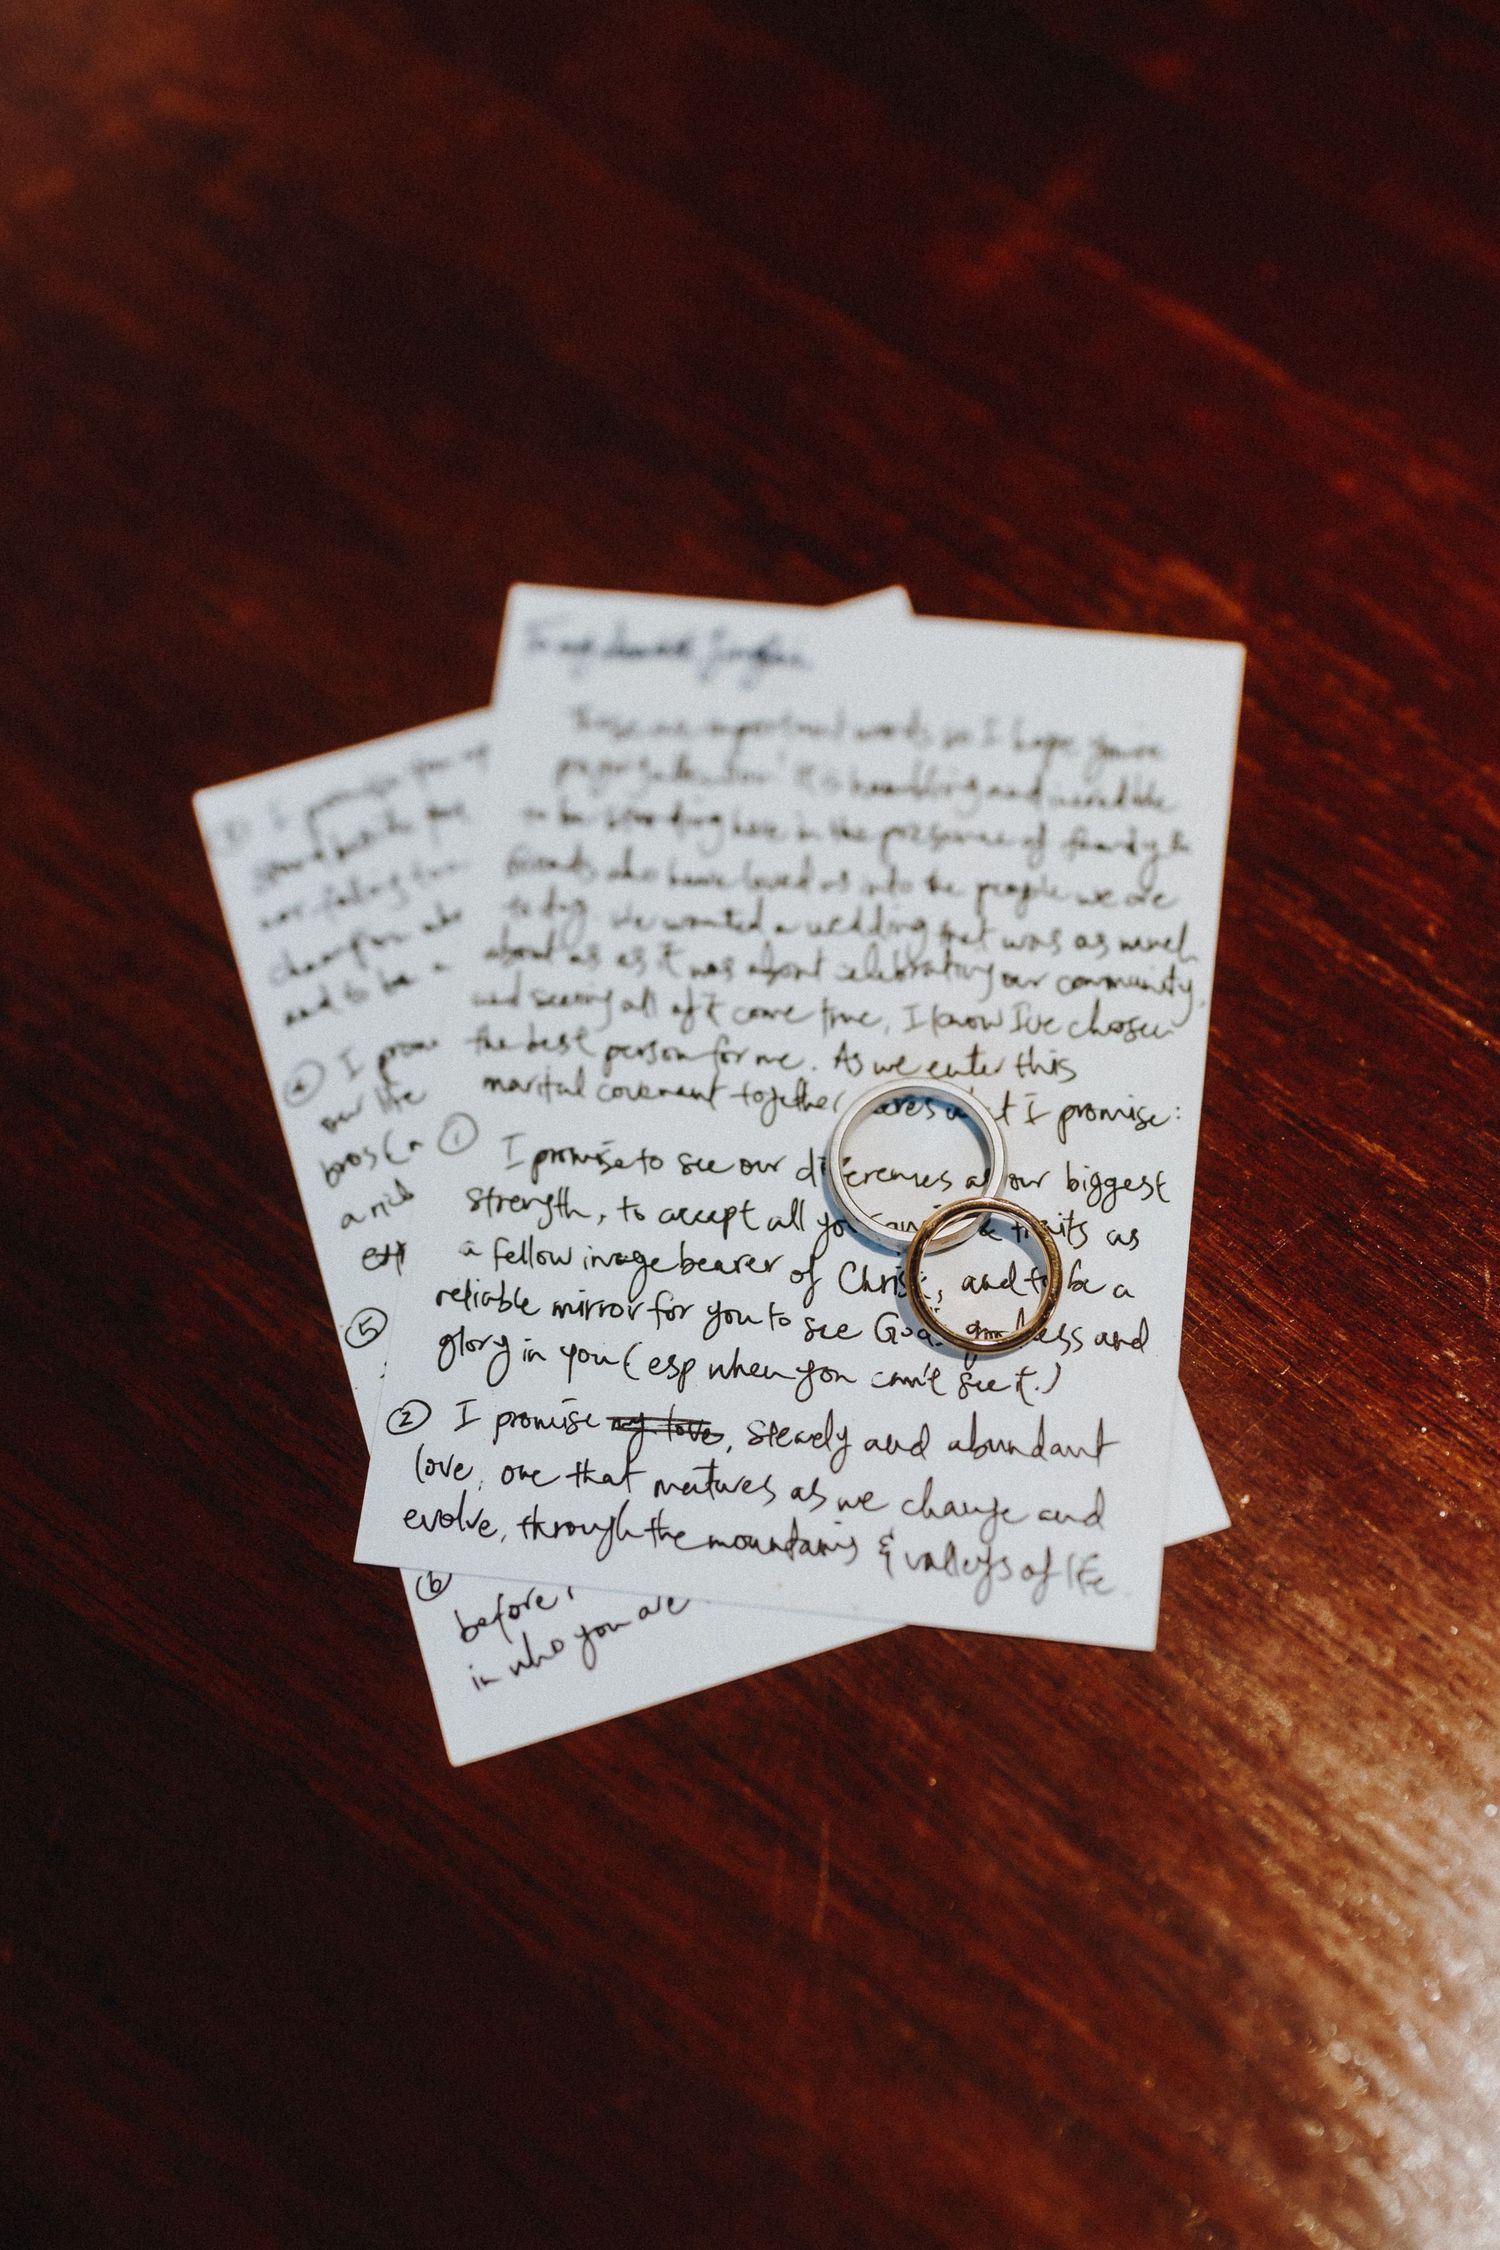 To my dearest
These are important words so I hope you're
paying attention! It is humbling and incredible
to be standing here in the presence of family &
friends who have loved us into the people we are
today. We wanted a wedding that was as much
about us as it was about celebrating our community,
and seeing all of it come true, I know I've chosen
the best person for me. As we enter this
marital covenant together, I promise:
① I promise to see our differences as our biggest
strength, to accept all your & traits as
a fellow image bearer of Christ, and to be a
reliable mirror for you to see God's goodness and
glory in you (esp when you can't see it.)
② I promise my love, steady and abundant
love, one that matures as we change and
evolve, through the mountains & valleys of life
I promise
and to be a
④ I
our life
and
⑤
⑥
before,
in who you are